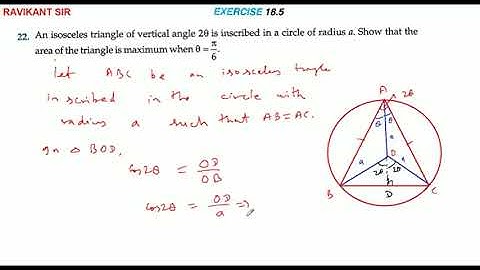 RAVIKANT SIR
EXERCISE 18.5
22. An isosceles triangle of vertical angle 2θ is inscribed in a circle of radius a. Show that the
area of the triangle is maximum when θ = π/6.
Let ABC be an isosceles
inscribed in the circle with
radius a such that AB = AC.
In △ BOD,
cos2θ = OD/OB
cos2θ = OD/a ⇒
A 2θ
θ θ
a
O
a a
2θ 2θ
B D C